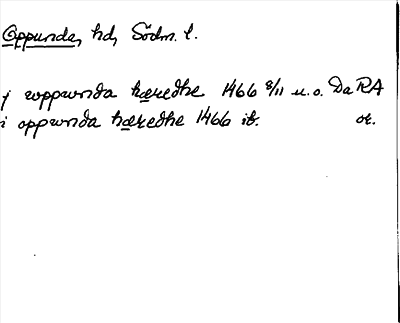 Oppunda, hd, Södm. l.
j wppwnda hæredhe 1466 8/11 u.o. Da RA
i oppwnda hæredhe 1466 ib. or.